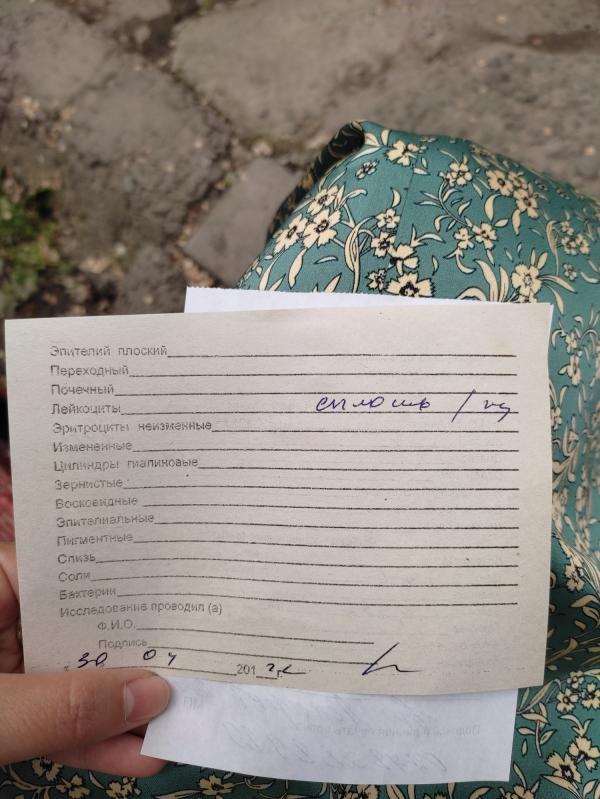 Эпителий плоский
Переходный
Почечный
Лейкоциты сплошь /
Эритроциты неизменные
Измененные
Цилиндры гиалиновые
Зернистые
Восковидные
Эпителиальные
Пигментные
Слизь
Соли
Бактерии
Исследование проводил (а)
Ф.И.О.
Подпись
30 04 201 г.